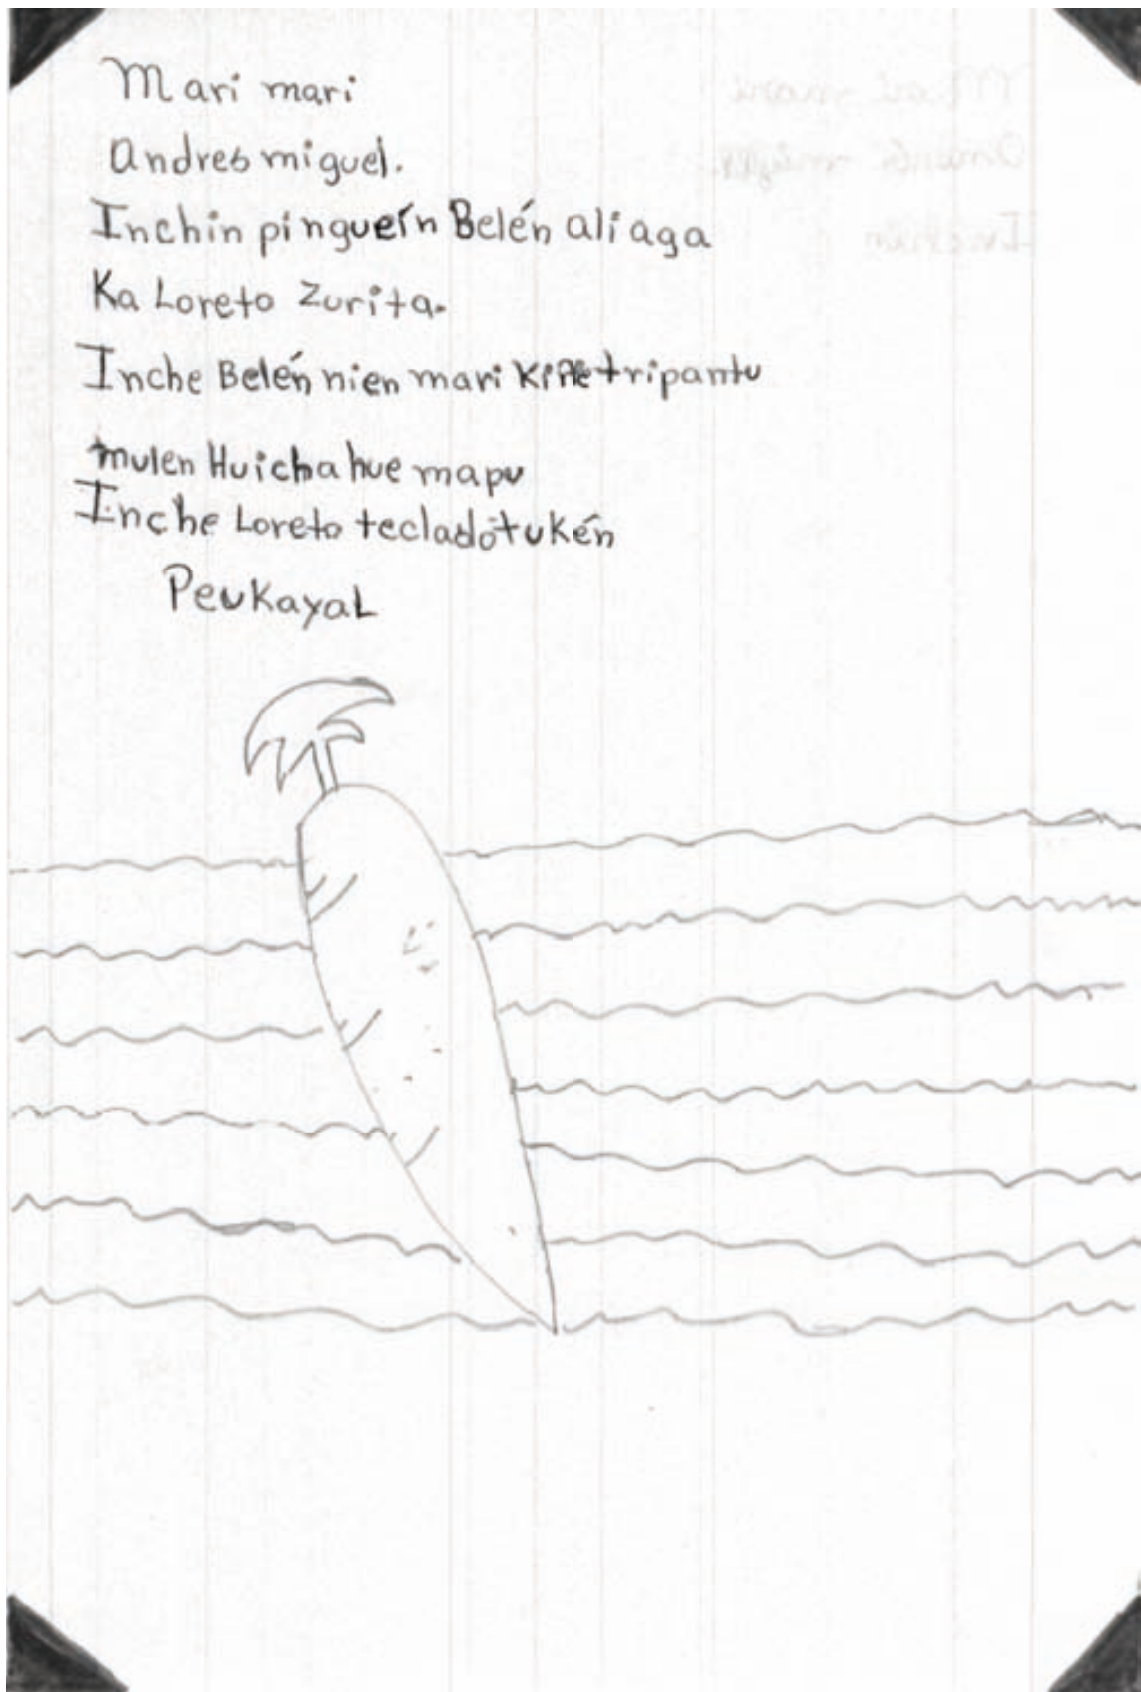 Mari mari
Andres miguel.
Inchin pingueín Belén aliaga
Ka Loreto Zurita.
Inche Belén nien mari Kiñe tripantu
mulen Huichahue mapu
Inche Loreto tecladotukén
PeuKayaL